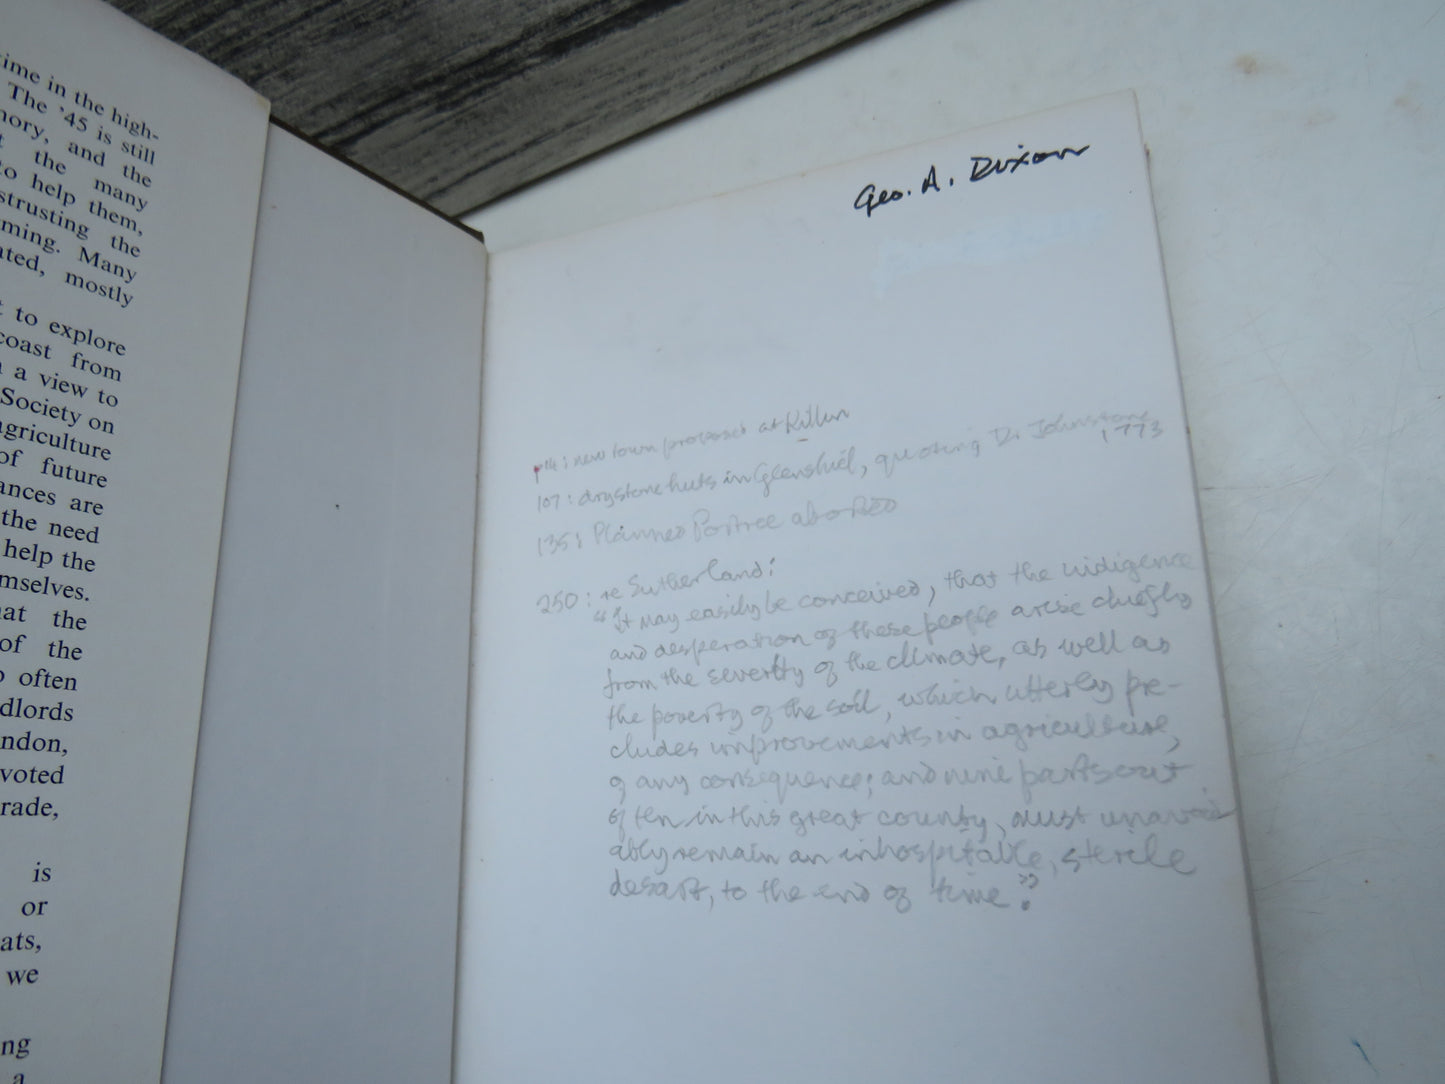 time in the high-
The '45 is still
mory, and the
the many
to help them,
strusting the
ming. Many
ated, mostly
to explore
coast from
a view to
Society on
agriculture
of future
ances are
the need
help the
mselves.
hat the
of the
o often
dlords
ndon,
voted
rade,
is
or
ats,
we
ng
a
Geo. A. Dixon
p14: new town proposed at Killin
107: drystone huts in Glenshiel, quoting Dr Johnstone
1773
135: Planned Portree aborted
250: re Sutherland:
"It may easily be conceived, that the indigence
and desperation of these people arise chiefly
from the severity of the climate, as well as
the poverty of the soil, which utterly pre-
cludes improvements in agriculture,
of any consequence; and nine parts out
of ten in this great county, must unavoid
ably remain an inhospitable, sterile
desart, to the end of time".